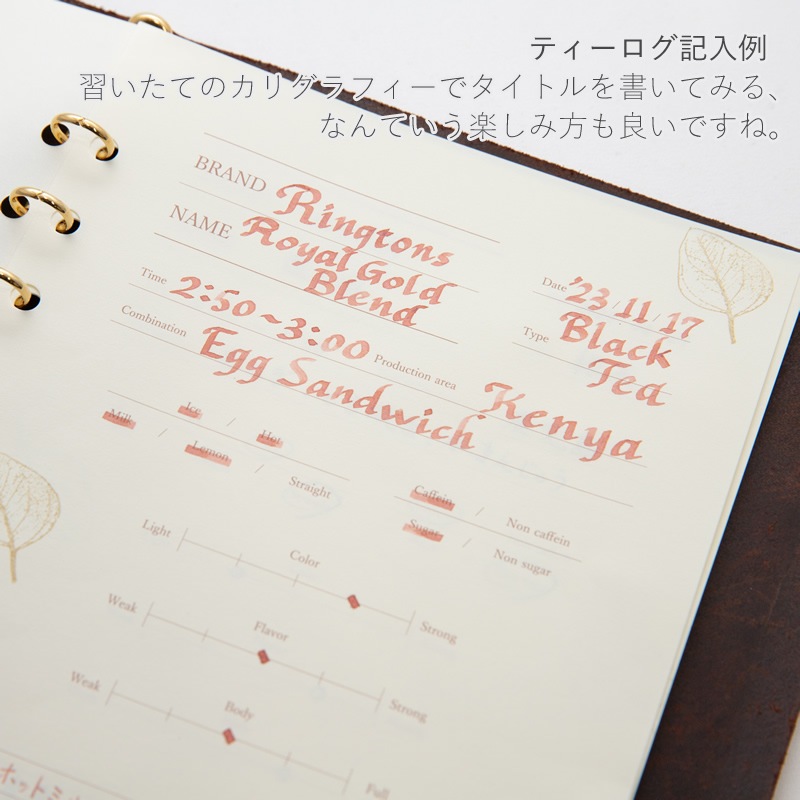 ティーログ記入例
習いたてのカリグラフィーでタイトルを書いてみる、
なんていう楽しみ方も良いですね。
BRAND Ringtons
NAME Royal Gold
Blend
Date '23/11/17
Type Black
Tea
Time 2:50~3:00
Production area Kenya
Combination Egg Sandwich
Milk / Ice / Hot
Lemon / Straight
Caffein / Non caffein
Sugar / Non sugar
Light Color Strong
Weak Flavor Strong
Weak Body Full